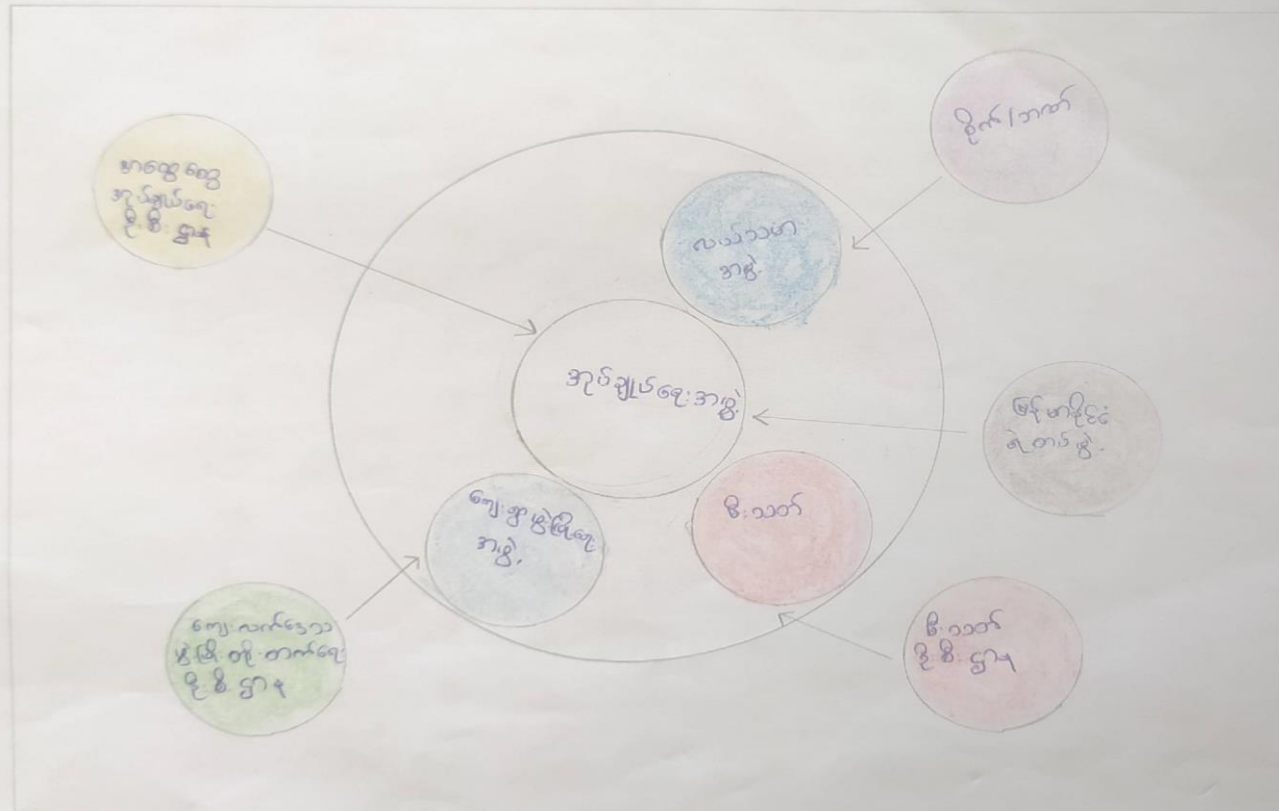 အထွေထွေ
အုပ်ချုပ်ရေး
ဦးစီးဌာန
စိုက်/ဘဏ်
လယ်သမား
အဖွဲ့
အုပ်ချုပ်ရေးအဖွဲ့
မြန်မာနိုင်ငံ
ရဲတပ်ဖွဲ့
ကျေးရွာဖွံ့ဖြိုးရေး
အဖွဲ့
မီးသတ်
ကျေးလက်ဒေသ
ဖွံ့ဖြိုးတိုးတက်ရေး
ဦးစီးဌာန
မီးသတ်
ဦးစီးဌာန